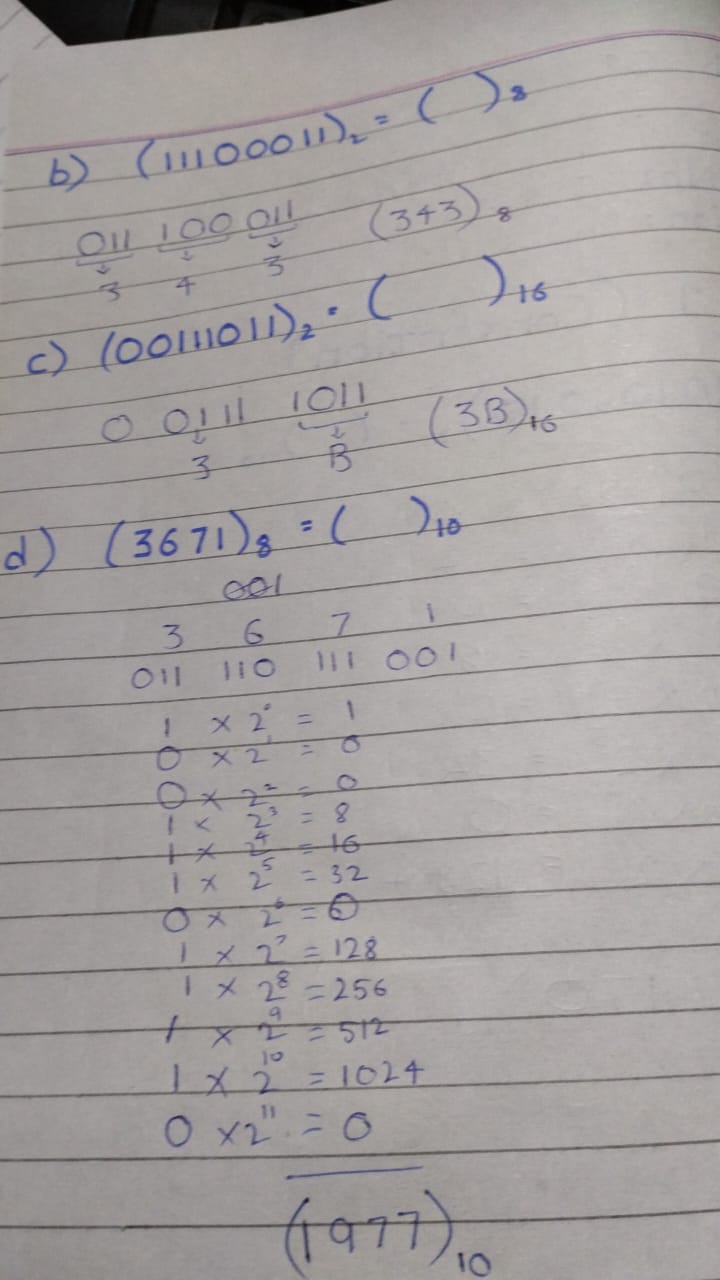 b) (11100011)₂ = ( )₈
011 100 011 (343)₈
↓ ↓ ↓
3 4 3
c) (00111011)₂ = ( )₁₆
0 0111 1011 (3B)₁₆
↓ ↓
3 B
d) (3671)₈ = ( )₁₀
001
3 6 7 1
011 110 111 001
1 × 2⁰ = 1
0 × 2¹ = 0
0 × 2² = 0
1 × 2³ = 8
1 × 2⁴ = 16
1 × 2⁵ = 32
0 × 2⁶ = 0
1 × 2⁷ = 128
1 × 2⁸ = 256
1 × 2⁹ = 512
1 × 2¹⁰ = 1024
0 × 2¹¹ = 0
(1977)₁₀